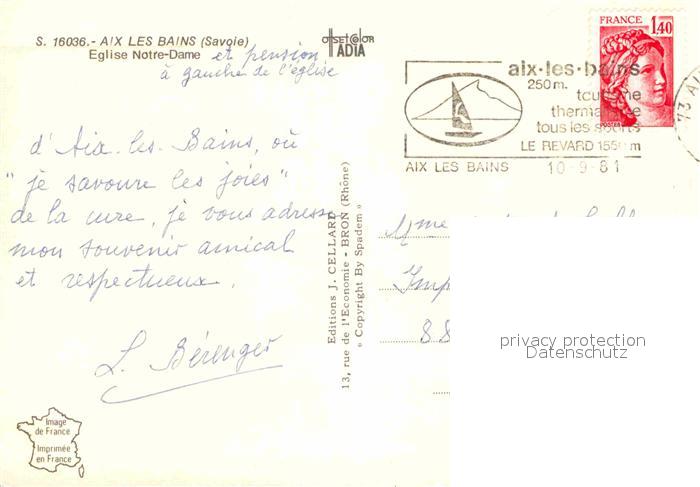 S. 16036.- AIX LES BAINS (Savoie)
Eglise Notre-Dame et pension
à gauche de l'église
offset color
IADIA
FRANCE
1,40
POSTES
aix-les-bains
250 m.
tourisme
thermalisme
tous les sports
LE REVARD 1550 m
AIX LES BAINS
10-9-81
73 A
d'Aix-les-Bains, où
"je savoure les joies"
de la cure, je vous adresse
mon souvenir amical
et respectueux.
L. Bérenger
Editions J. CELLARD
13, rue de l'Economie - BRON (Rhône)
« Copyright By Spadem »
Mme
Imp
88
privacy protection
Datenschutz
Image
de France
Imprimée
en France